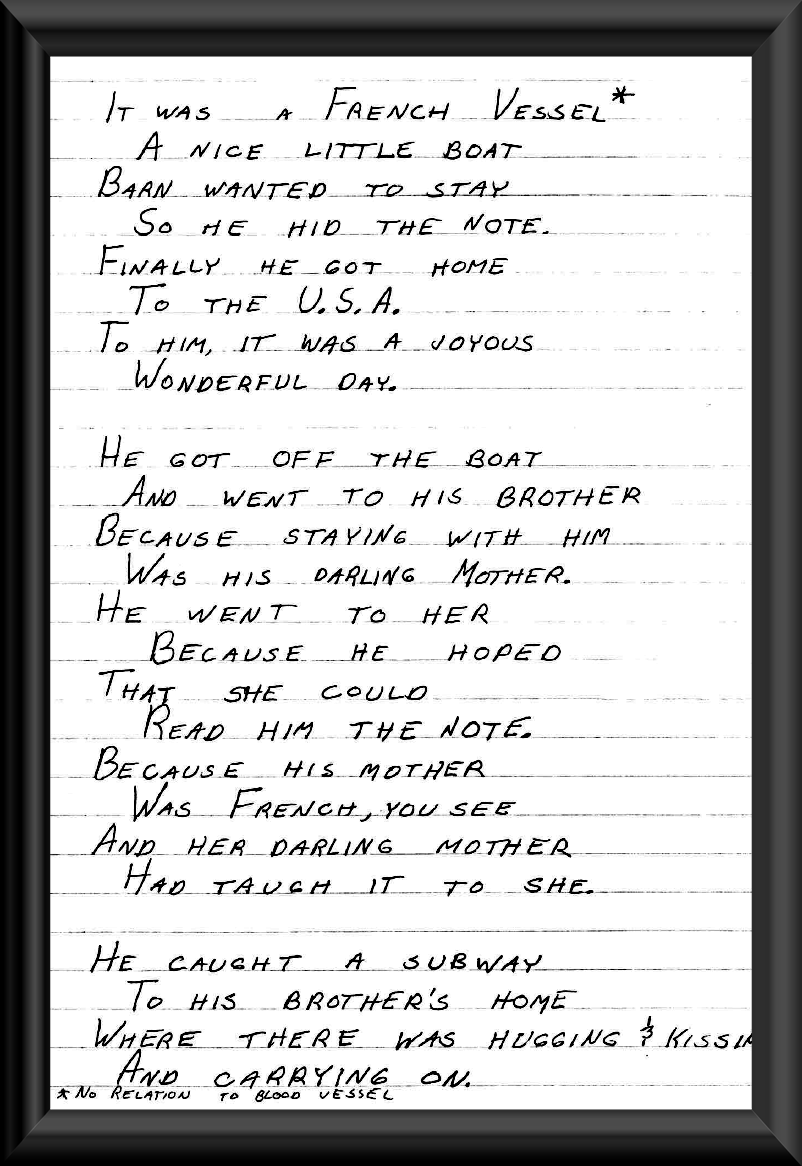 It was a French Vessel*
A nice little boat
Barn wanted to stay
So he hid the note.
Finally he got home
To the U.S.A.
To him, it was a joyous
Wonderful day.
He got off the boat
And went to his brother
Because staying with him
Was his darling Mother.
He went to her
Because he hoped
That she could
Read him the note.
Because his mother
Was French, you see
And her darling mother
Had taugh it to she.
He caught a subway
To his brother's home
Where there was hugging & kissin
And carrying on.
* No Relation to blood vessel